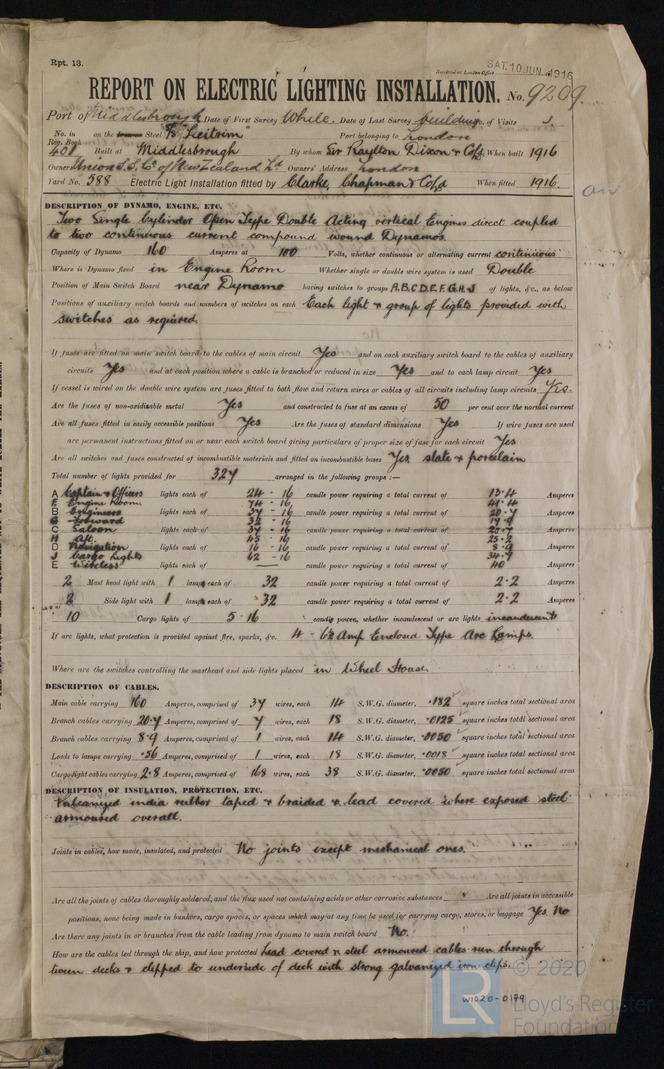 Rpt. 13.
Received at London Office SAT. 10 JUN. 1916
REPORT ON ELECTRIC LIGHTING INSTALLATION. No. 9209.
Port of Middlesbrough Date of First Survey While Date of Last Survey building No. of Visits
No. in Reg. Book on the Steel "Leitrim" Port belonging to London
401 Built at Middlesbrough By whom Sir Raylton Dixon & Co Ld When built 1916
Owners Union S.S. Co of New Zealand Ld Owners' Address London
Yard No. 588 Electric Light Installation fitted by Clarke, Chapman & Co Ld When fitted 1916.
DESCRIPTION OF DYNAMO, ENGINE, ETC.
Two Single Cylinder Open Type Double Acting vertical Engines direct coupled
to two continuous current compound wound Dynamos.
Capacity of Dynamo 160 Amperes at 100 Volts, whether continuous or alternating current continuous
Where is Dynamo fixed in Engine Room Whether single or double wire system is used Double
Position of Main Switch Board near Dynamo having switches to groups A, B, C, D, E, F, G, H, J of lights, &c., as below
Positions of auxiliary switch boards and numbers of switches on each Each light & group of lights provided with
switches as required.
If fuses are fitted on main switch board to the cables of main circuit Yes and on each auxiliary switch board to the cables of auxiliary
circuits Yes and at each position where a cable is branched or reduced in size Yes and to each lamp circuit Yes
If vessel is wired on the double wire system are fuses fitted to both flow and return wires or cables of all circuits including lamp circuits Yes.
Are the fuses of non-oxidisable metal Yes and constructed to fuse at an excess of 50 per cent over the normal current
Are all fuses fitted in easily accessible positions Yes Are the fuses of standard dimensions Yes If wire fuses are used
are permanent instructions fitted on or near each switch board giving particulars of proper size of fuse for each circuit Yes
Are all switches and fuses constructed of incombustible materials and fitted on incombustible bases Yes, slate & porcelain
Total number of lights provided for 324 arranged in the following groups :—
A Captain & Officers lights each of 24 - 16 candle power requiring a total current of 13.4 Amperes
F Engine Room 74 - 16 41.4
B Engineers lights each of 37 - 16 candle power requiring a total current of 20.7 Amperes
G Forward 32 - 16 17.9
C Saloon lights each of 37 - 16 candle power requiring a total current of 20.7 Amperes
H Aft. 45 - 16 25.2
D Navigation lights each of 16 - 16 candle power requiring a total current of 8.9 Amperes
J Cargo Lights 62 - 16 34.7
E Wireless lights each of — candle power requiring a total current of 40 Amperes
2 Mast head light with 1 lamps each of 32 candle power requiring a total current of 2.2 Amperes
2 Side light with 1 lamps each of 32 candle power requiring a total current of 2.2 Amperes
10 Cargo lights of 5 - 16 candle power, whether incandescent or arc lights incandescent
If arc lights, what protection is provided against fire, sparks, &c. 4 - Amp Enclosed Type Arc Lamps.
Where are the switches controlling the masthead and side lights placed in Wheel House.
DESCRIPTION OF CABLES.
Main cable carrying 160 Amperes, comprised of 37 wires, each 14 S.W.G. diameter, .182 square inches total sectional area
Branch cables carrying 20.7 Amperes, comprised of 7 wires, each 18 S.W.G. diameter, .0125 square inches total sectional area
Branch cables carrying 8.9 Amperes, comprised of 1 wires, each 14 S.W.G. diameter, .0050 square inches total sectional area
Leads to lamps carrying .56 Amperes, comprised of 1 wires, each 18 S.W.G. diameter, .0018 square inches total sectional area
Cargo light cables carrying 2.8 Amperes, comprised of 168 wires, each 38 S.W.G. diameter, .0050 square inches total sectional area
DESCRIPTION OF INSULATION, PROTECTION, ETC.
Vulcanized india rubber taped & braided & lead covered where exposed steel
armoured overall.
Joints in cables, how made, insulated, and protected No joints except mechanical ones.
Are all the joints of cables thoroughly soldered, and the flux used not containing acids or other corrosive substances Are all joints in accessible
positions, none being made in bunkers, cargo spaces, or spaces which may at any time be used for carrying cargo, stores, or baggage Yes. No
Are there any joints in or branches from the cable leading from dynamo to main switch board No.
How are the cables led through the ship, and how protected Lead covered & steel armoured cables run through
tween decks & clipped to underside of deck with strong galvanized iron clips.
© 2020
W1020-0179
LR Lloyd's Register
Foundation